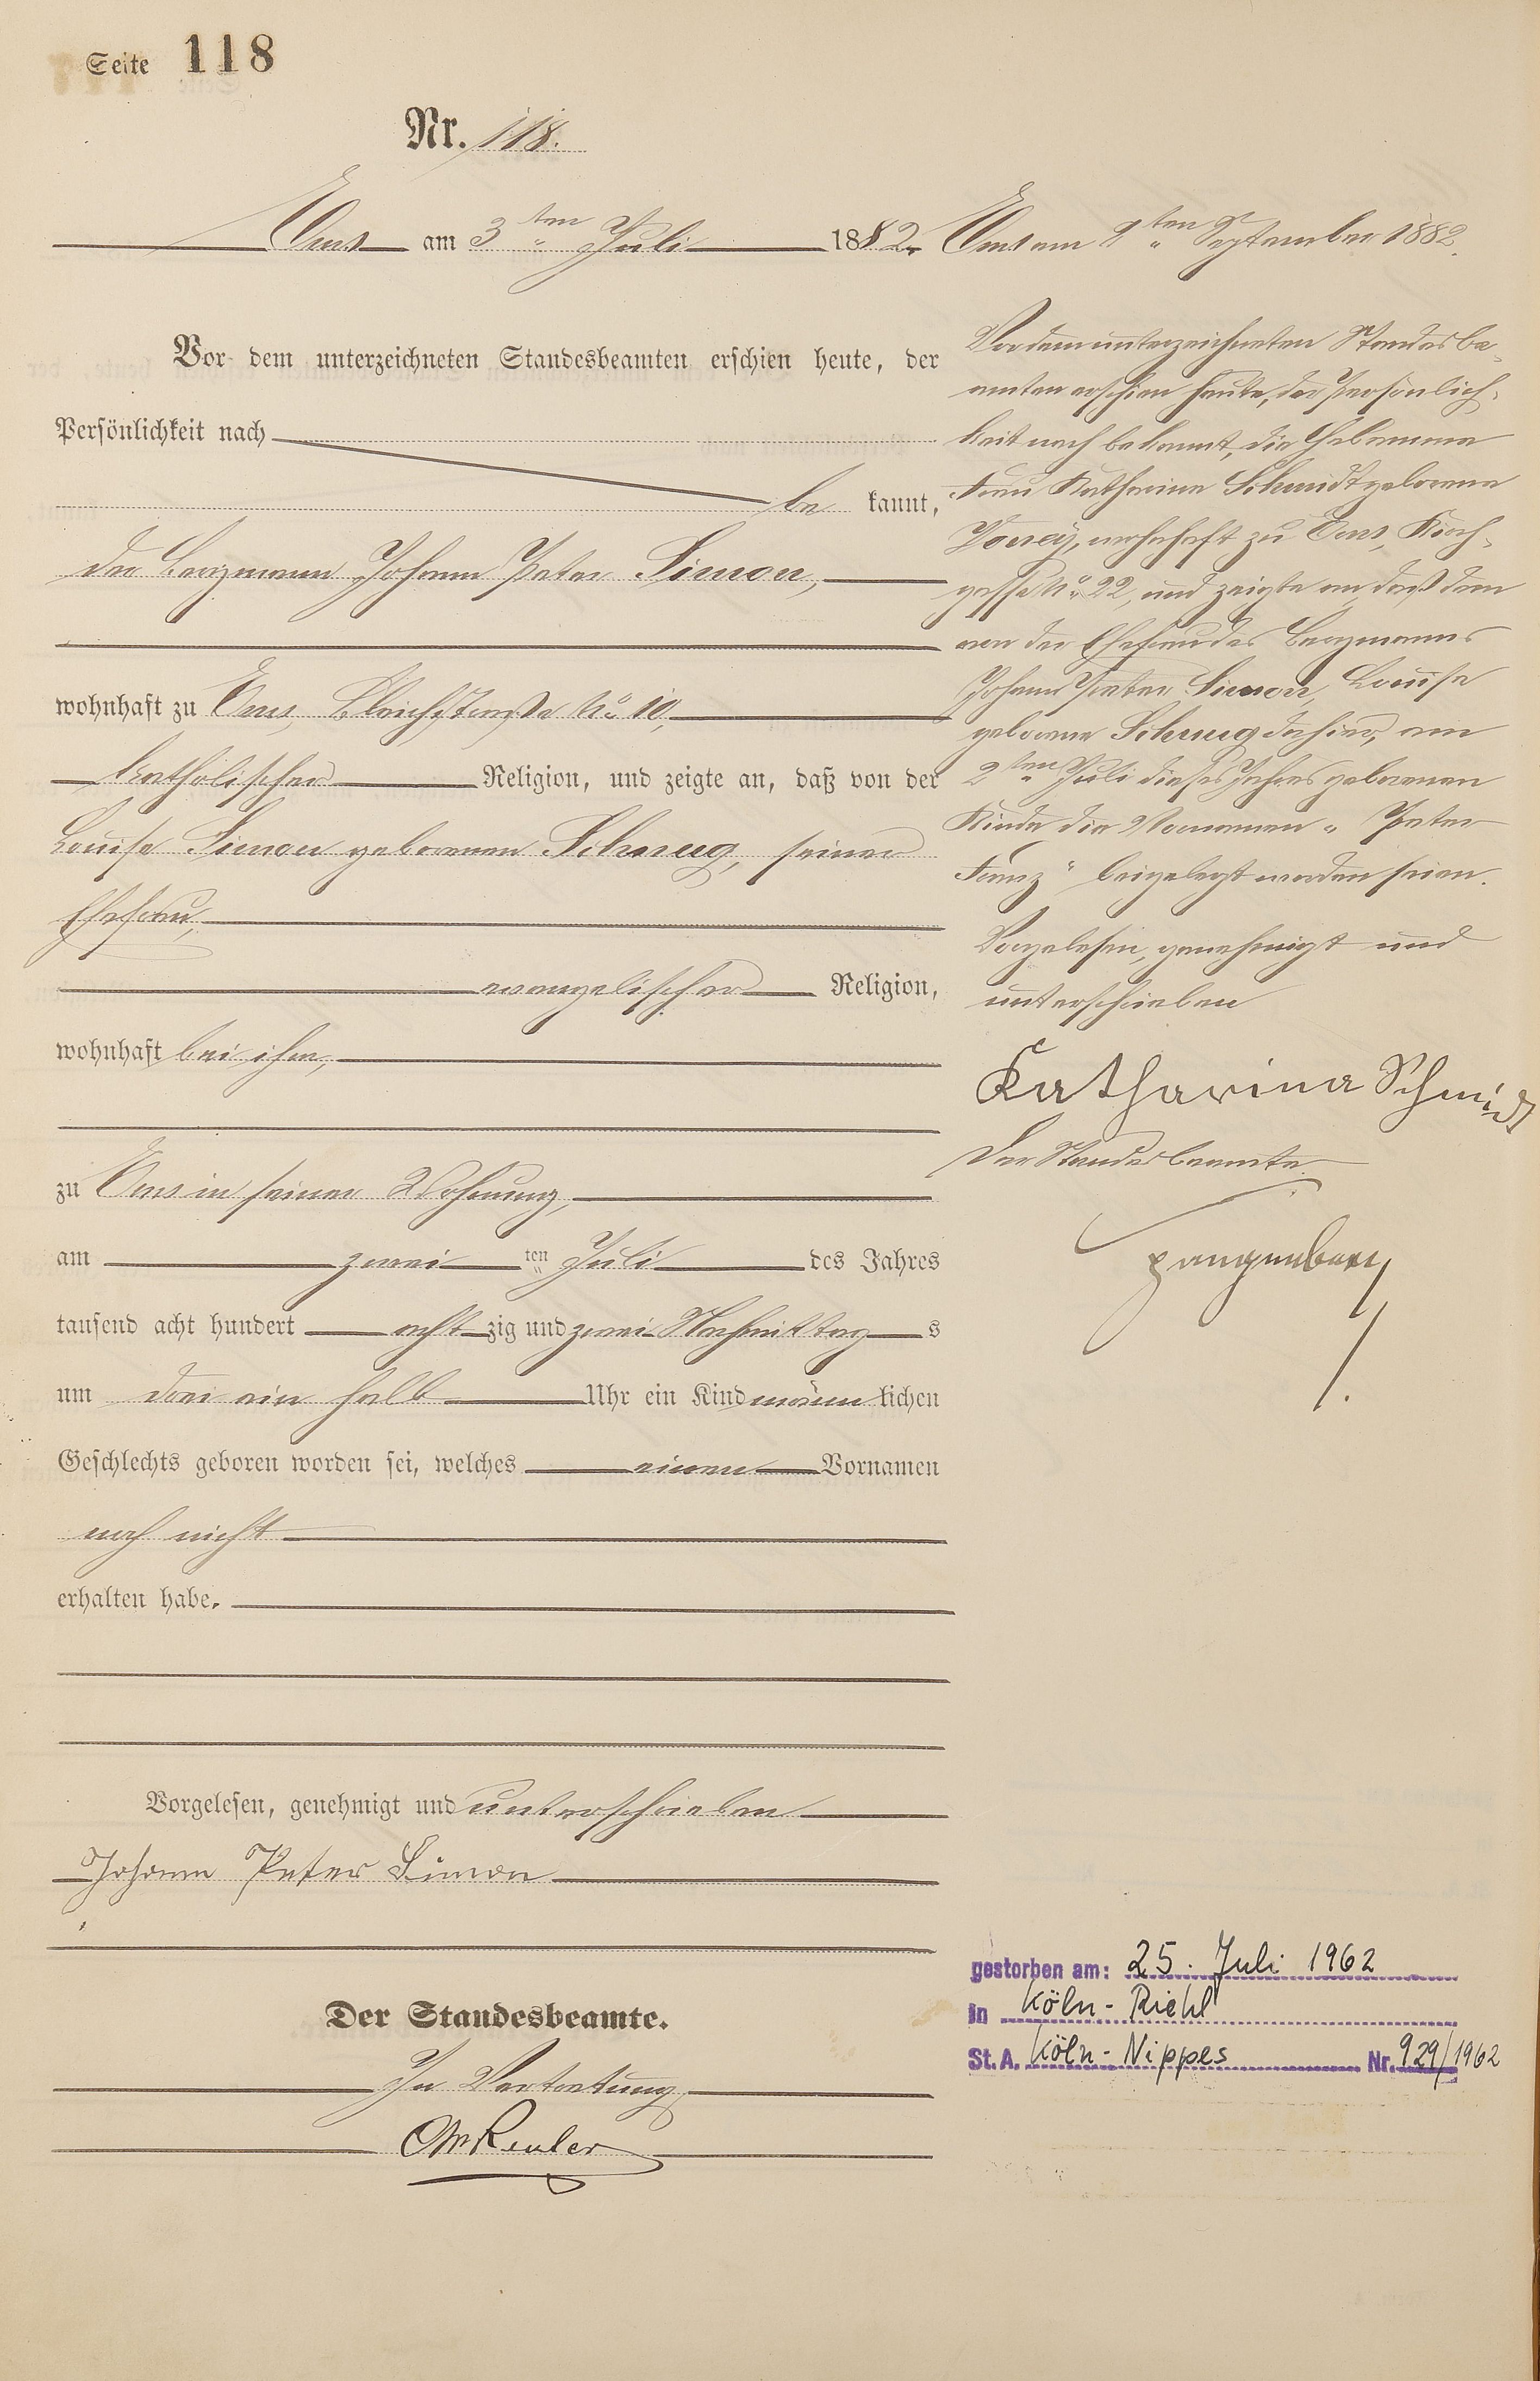 Seite 118
Nr. 118.
Ems am 3ten Juli 1882.
Vor dem unterzeichneten Standesbeamten erschien heute, der
Persönlichkeit nach
be kannt,
der Bergmann Johann Peter Simon,
wohnhaft zu Ems, Bleichstraße No 10,
katholischer Religion, und zeigte an, daß von der
Louise Simon geborenen Schnug, seiner
Ehefrau,
evangelischer Religion,
wohnhaft bei ihm,
zu Ems in seiner Wohnung,
am zwei ten Juli des Jahres
tausend acht hundert acht zig und zwei Nachmittag s
um drei ein halb Uhr ein Kind männ lichen
Geschlechts geboren worden sei, welches einen Vornamen
noch nicht
erhalten habe.
Vorgelesen, genehmigt und unterschrieben
Johann Peter Simon
Der Standesbeamte.
In Vertretung
Reuler
Ems am ten September 1882.
Vor dem unterzeichneten Standesbe-
amten erschien heute, der Persönlich-
keit nach bekannt, die Hebamme
Frau Katharina Schmidt geborene
wohnhaft zu Ems, Kirch-
gasse No 22, und zeigte an, daß dem
von der Ehefrau des Bergmanns
Johann Peter Simon, Louise
geborene Schnug dahier, am
2ten Juli dieses Jahres geborenen
Kinde die Vornamen „Peter
Franz“ beigelegt worden seien.
Vorgelesen, genehmigt und
unterschrieben
Katharina Schmidt
Der Standesbeamte
gestorben am: 25. Juli 1962
in Köln-Riehl
St. A. Köln-Nippes Nr. 929/1962